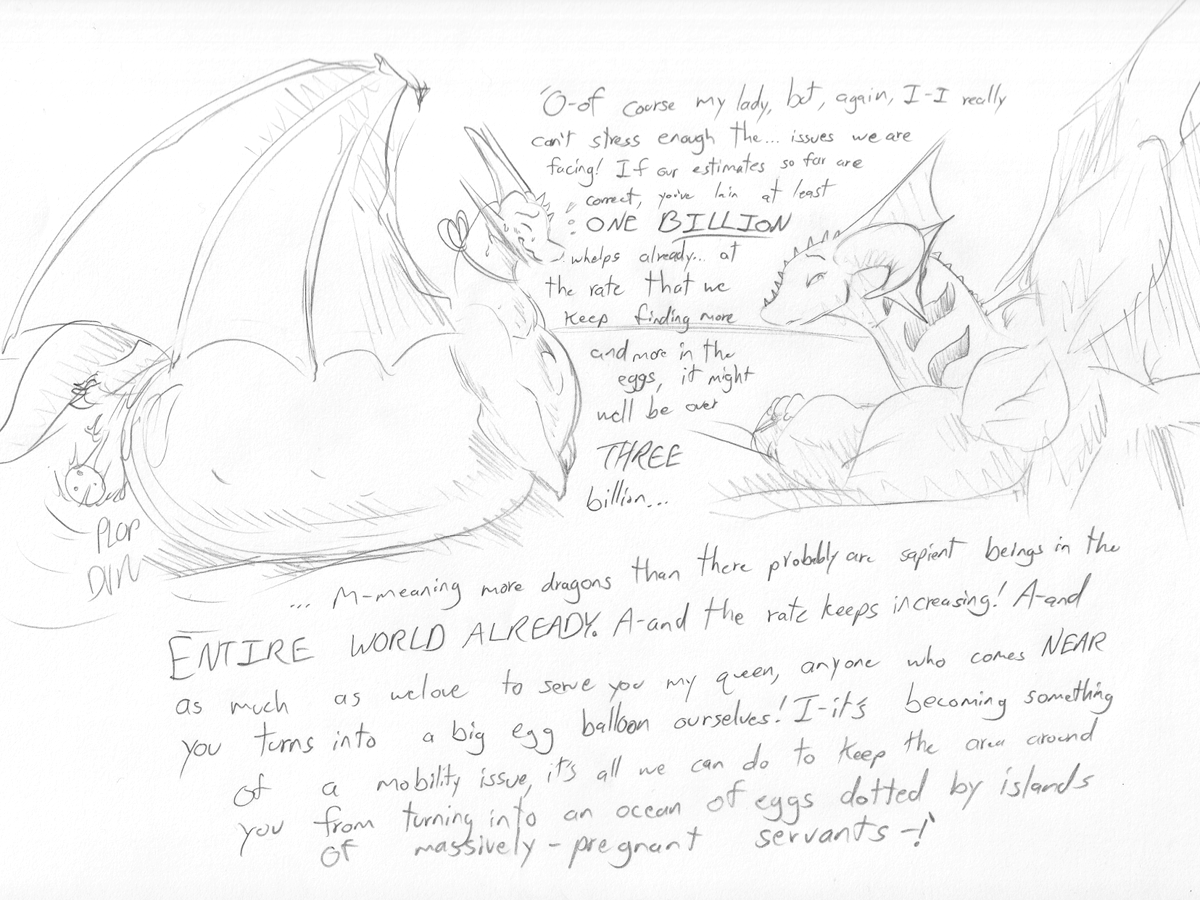 'O-of course my lady, but, again, I-I really
can't stress enough the... issues we are
facing! If our estimates so far are
correct, you've lain at least
ONE BILLION
whelps already... at
the rate that we
keep finding more
and more in the
eggs, it might
well be over
THREE
billion...
PLOP
... M-meaning more dragons than there probably are sapient beings in the
ENTIRE WORLD ALREADY. A-and the rate keeps increasing! A-and
as much as we love to serve you my queen, anyone who comes NEAR
you turns into a big egg balloon ourselves! I-it's becoming something
of a mobility issue, it's all we can do to keep the area around
you from turning into an ocean of eggs dotted by islands
of massively-pregnant servants-!'